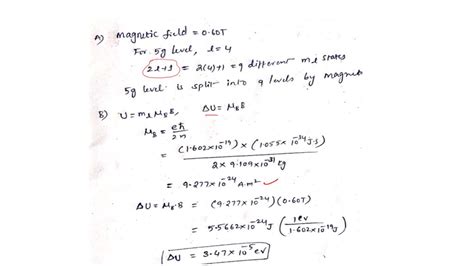 A) Magnetic field = 0.60T
For 5g level, l = 4
2l+1 = 2(4)+1 = 9 different ml states
5g level is split into 9 levels by magnets
B) U = ml μB B, ΔU = μB B
μB = eħ / 2m
= (1.602×10^-19) × (1.055×10^-34 J.S) / 2× 9.109×10^-31 kg
= 9.277×10^-24 A.m²
ΔU = μB·B = (9.277×10^-24)(0.60T)
= 5.5662×10^-24 J (1ev / 1.602×10^-19 J)
ΔU = 3.47×10^-5 ev